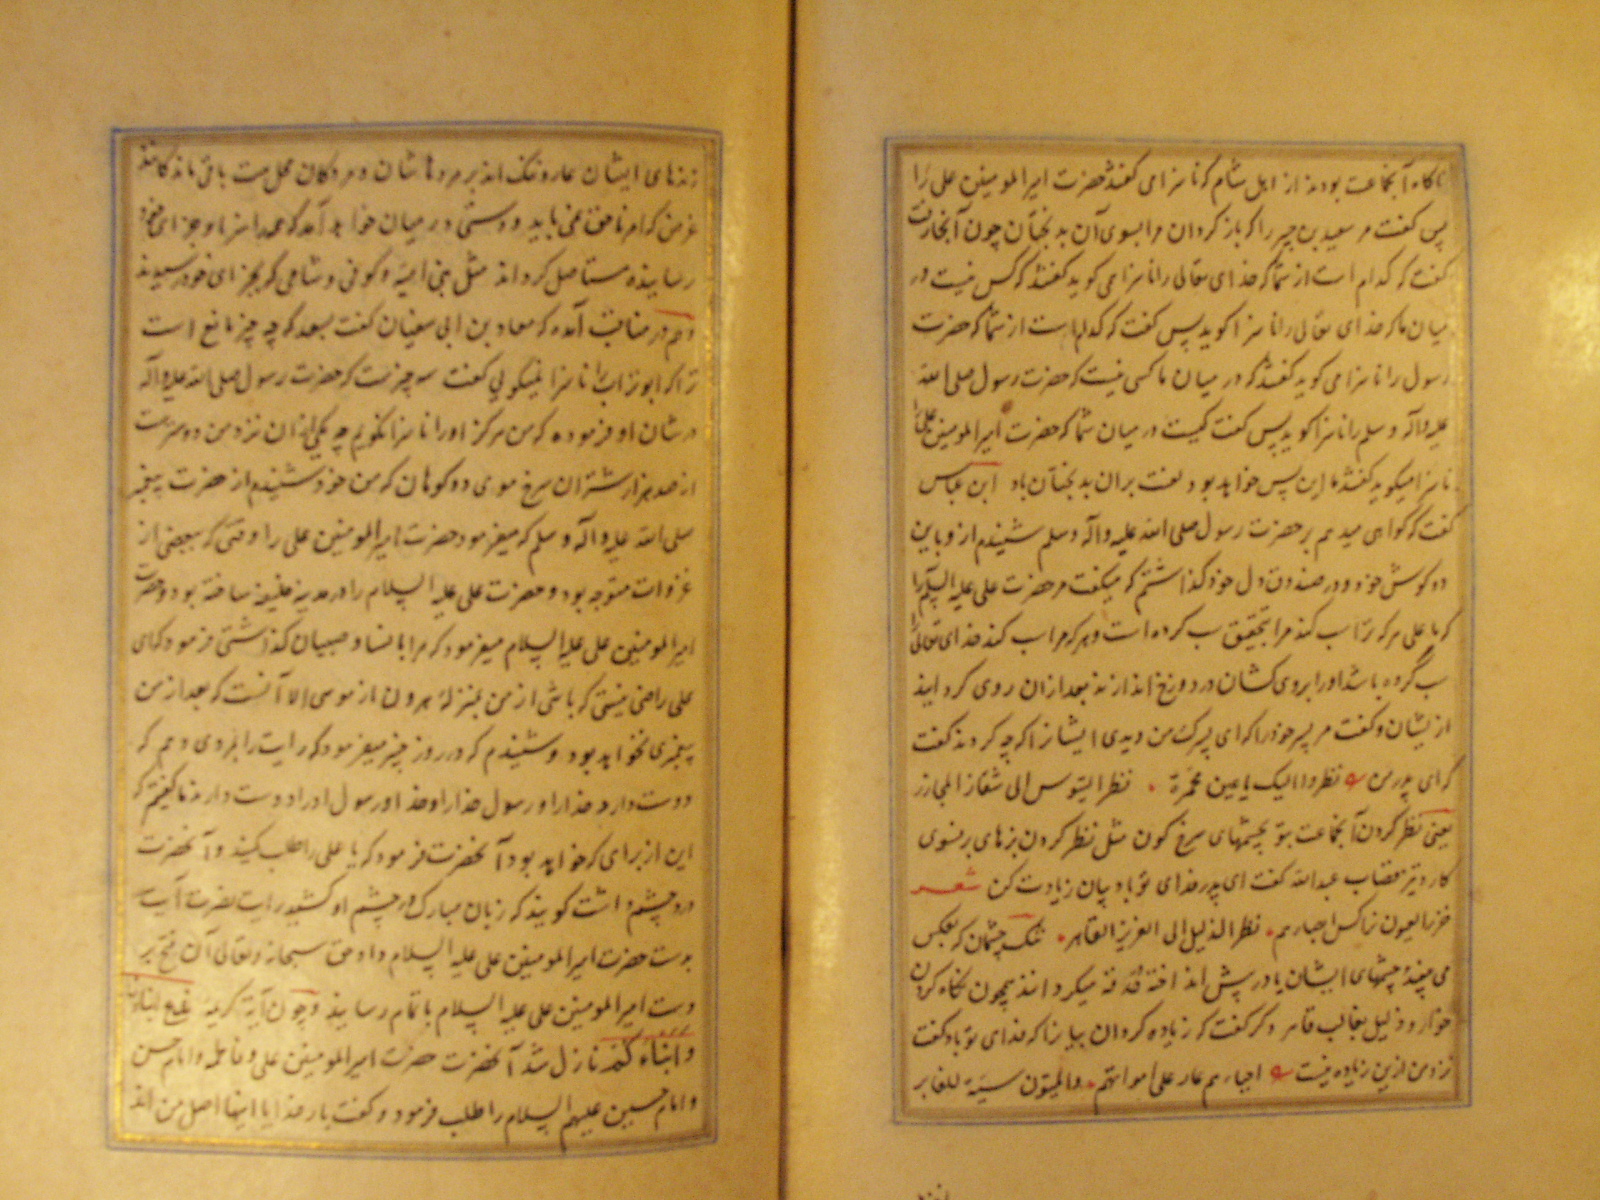 ناگاه آنجماعت بودند از اهل شام که ناسزا می گفتند حضرت امیرالمومنین علی را
پس گفت مر سعید بن جبیر را که باز گردان مرا بسوی آن بدبختان چون آنجا رفت
گفت که کدام است از شما که خدای تعالی را ناسزا می گوید گفتند که کس نیست در
میان ما که خدای تعالی را ناسزا گوید پس گفت که کدام است از شما که حضرت
رسول را ناسزا می گوید گفتند که در میان ما کسی نیست که حضرت رسول صلی الله
علیه واله وسلم را ناسزا گوید پس گفت کیست در میان شما که حضرت امیرالمومنین علی را
ناسزا میگوید گفتند ما این پس خواهد بود لعنت بران بدبختان باد ابن عباس
گفت که گواهی میدهم بر حضرت رسول صلی الله علیه واله وسلم شنیدم ازو باین
دو گوش خود و در صندوق دل خود گذاشتم که میگفت مر حضرت علی علیه السلام را
که یا علی هر که ترا سب کند مرا بتحقیق سب کرده است و هر که مرا سب کند خدای تعالی را
سب کرده باشد او را بروی کشان در دوزخ اندازند بعد ازان روی گردانید
از یشان و گفت مر پسر خود را که ای پسرک من دیدی ایشانرا که چه کردند گفت
که ای پدر من نظروا الیک باعین محمرة نظر التیوس الی شفار الجازر
یعنی نظر کردن آنجماعت بتو بچشمهای سرخ گون مثل نظر کردن بزهای بر بسوی
کارد تیز قصاب عبدالله گفت ای پدر خدای تو باد بیان زیادت کن شعر
خزر العیون نواکس ابصارهم نظر الذلیل الی العزیز القاهر تنگ چشمان که بعکس
می بیند چشمهای ایشان یا در پیش اند اخته قه قه میگرداند همچون نگاه کردن
خوار و ذلیل بغالب قاهر دگر گفت که زیاده گردان بیانرا که خدای تو باد گفت
نزد من ازین زیاده نیست احیاءهم عار علی امواتهم والمیتون سبة للغابر
زندهای ایشان عار و ننگ اند بر مردهاشان و مردگان محل سب باقی ماندگانند
غرض که امر ناحق نمی باید و دستی در میان خواهد آمد که همه را سزا و جزای خود
رسانیده مستاصل گرداند مثل بنی امیه و کوفی و شامی که بجزای خود رسیدند
و هم در مناقب آمده که معاویه بن ابی سفیان گفت بسعد که چه چیز مانع است
ترا که ابوتراب را ناسزا نمیگویی گفت سه چیزست که حضرت رسول صلی الله علیه واله
در شان او فرموده که من هرگز او را ناسزا نگویم چه یکی ازان نزد من دوسترست
از صد هزار شتران سرخ موی دو کوهان که من خود شنیدم از حضرت پیغمبر
صلی الله علیه واله وسلم که میفرمود حضرت امیرالمومنین علی را وقتی که ببعضی از
غزوات متوجه بود و حضرت علی علیه السلام را در مدینه خلیفه ساخته بود و حضرت
امیرالمومنین علی علیه السلام میفرمود که مرا با نسا و صبیان گذاشتی فرمود که ای
علی راضی نیستی که باشی از من بمنزلۀ هرون از موسی الا آنست که بعد از من
پیغمبری نخواهد بود و شنیدم که در روز خیبر میفرمود که رایت را بمردی دهم که
دوست دارد خدا را و رسول خدا را و خدا و رسول او را دوست دارند ما گفتیم که
این از برای که خواهد بود آنحضرت فرمود که یا علی را طلب کنید و آنحضرت
درد چشم داشت گویند که زبان مبارک در چشم او کشید رایت نصرت آیت
بدست حضرت امیرالمومنین علی علیه السلام داد حق سبحانه وتعالی آن فتح بر
دست امیرالمومنین علی علیه السلام باتمام رسانید و چون آیۀ کریمه ندع ابناءنا
وابناءکم نازل شد آنحضرت حضرت امیرالمومنین علی و فاطمه و امام حسن
و امام حسین علیهم السلام را طلب فرمود و گفت بار خدایا اینها اهل من اند